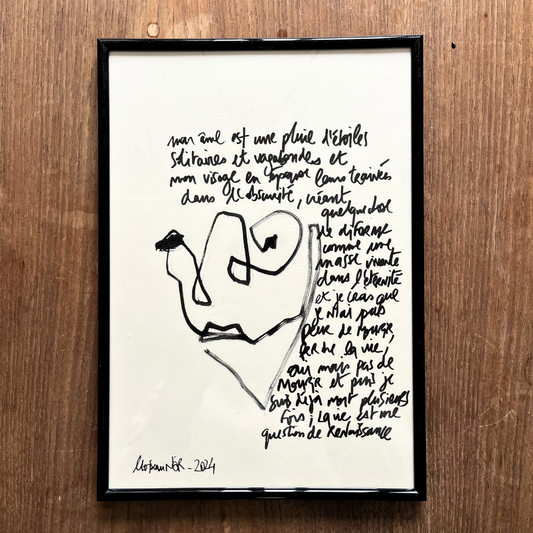 mon âme est une pluie d'étoiles
solitaires et vagabondes et
mon visage en époque leurs trainées
dans l'obscurité, créant
quelque chose
de difforme
comme une
masse vivante
dans l'éternité
et je crois que
je n'ai pas
peur de mourir
perdre la vie,
oui mais pas de
mourir et puis je
suis déjà mort plusieurs
fois, la vie est une
question de renaissance
- 2024